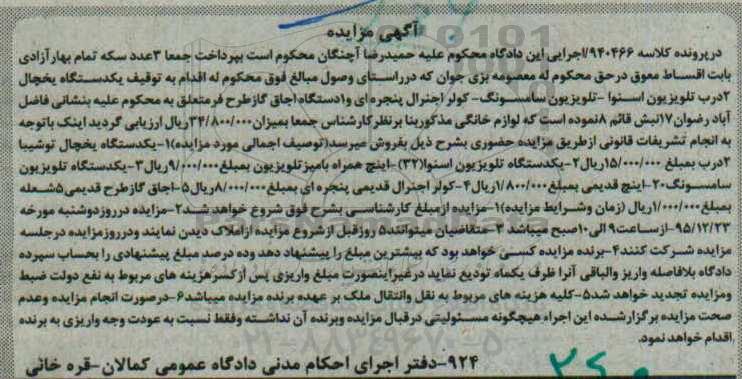 آگهی مزایده
درپرونده کلاسه ۹۴۰۴۶۶/اجرایی این دادگاه محکوم علیه حمیدرضا آچنگان محکوم است بپرداخت جمعا ۳عدد سکه تمام بهارآزادی
بابت اقساط معوق درحق محکوم له معصومه بزی جوان که درراستای وصول مبالغ فوق محکوم له اقدام به توقیف یکدستگاه یخچال
۲درب تلویزیون اسنوا -تلویزیون سامسونگ- کولر اجنرال پنجره ای و۱دستگاه اجاق گازطرح فرمتعلق به محکوم علیه بنشانی فاضل
آباد رضوان ۱۷نبش قائم ۸نموده است که لوازم خانگی مذکوربنا برنظرکارشناس جمعا بمیزان ۳۴/۸۰۰/۰۰۰ریال ارزیابی گردید اینک باتوجه
به انجام تشریفات قانونی ازطریق مزایده حضوری بشرح ذیل بفروش میرسد(توصیف اجمالی مورد مزایده)۱-یکدستگاه یخچال توشیبا
۲درب بمبلغ ۱۵/۰۰۰/۰۰۰ریال۲-یکدستگاه تلویزیون اسنوا(۳۲) -اینچ همراه بامیزتلویزیون بمبلغ ۹/۰۰۰/۰۰۰ریال۳-یکدستگاه تلویزیون
سامسونگ۲۰-اینچ قدیمی بمبلغ ۱/۸۰۰/۰۰۰ریال۴-کولر اجنرال قدیمی پنجره ای بمبلغ ۸/۰۰۰/۰۰۰ریال۵-اجاق گازطرح قدیمی ۵شعله
بمبلغ ۱/۰۰۰/۰۰۰ریال (زمان وشرایط مزایده)۱-مزایده ازمبلغ کارشناسی بشرح فوق شروع خواهد شد۲-مزایده درروزدوشنبه مورخه
۹۵/۱۲/۲۳-ازساعت۹ الی۱۰صبح میباشد ۳-متقاضیان میتوانند۵ روزقبل ازشروع مزایده ازاملاک دیدن نمایند ودرروزمزایده درجلسه
مزایده شرکت کنند۴-برنده مزایده کسی خواهد بود که بیشترین مبلغ را پیشنهاد دهد وده درصد مبلغ پیشنهادی را بحساب سپرده
دادگاه بلافاصله واریز والباقی آنرا ظرف یکماه تودیع نماید درغیراینصورت مبلغ واریزی پس ازکسرهزینه های مربوط به نفع دولت ضبط
ومزایده تجدید خواهد شد۵-کلیه هزینه های مربوط به نقل وانتقال ملک بر عهده برنده مزایده میباشد۶-درصورت انجام مزایده وعدم
صحت مزایده برگزارشده این اجراء هیچگونه مسئولیتی درقبال مزایده وبرنده آن نداشته وفقط نسبت به عودت وجه واریزی به برنده
اقدام خواهد نمود.
۹۲۴-دفتر اجرای احکام مدنی دادگاه عمومی کمالان-قره خانی